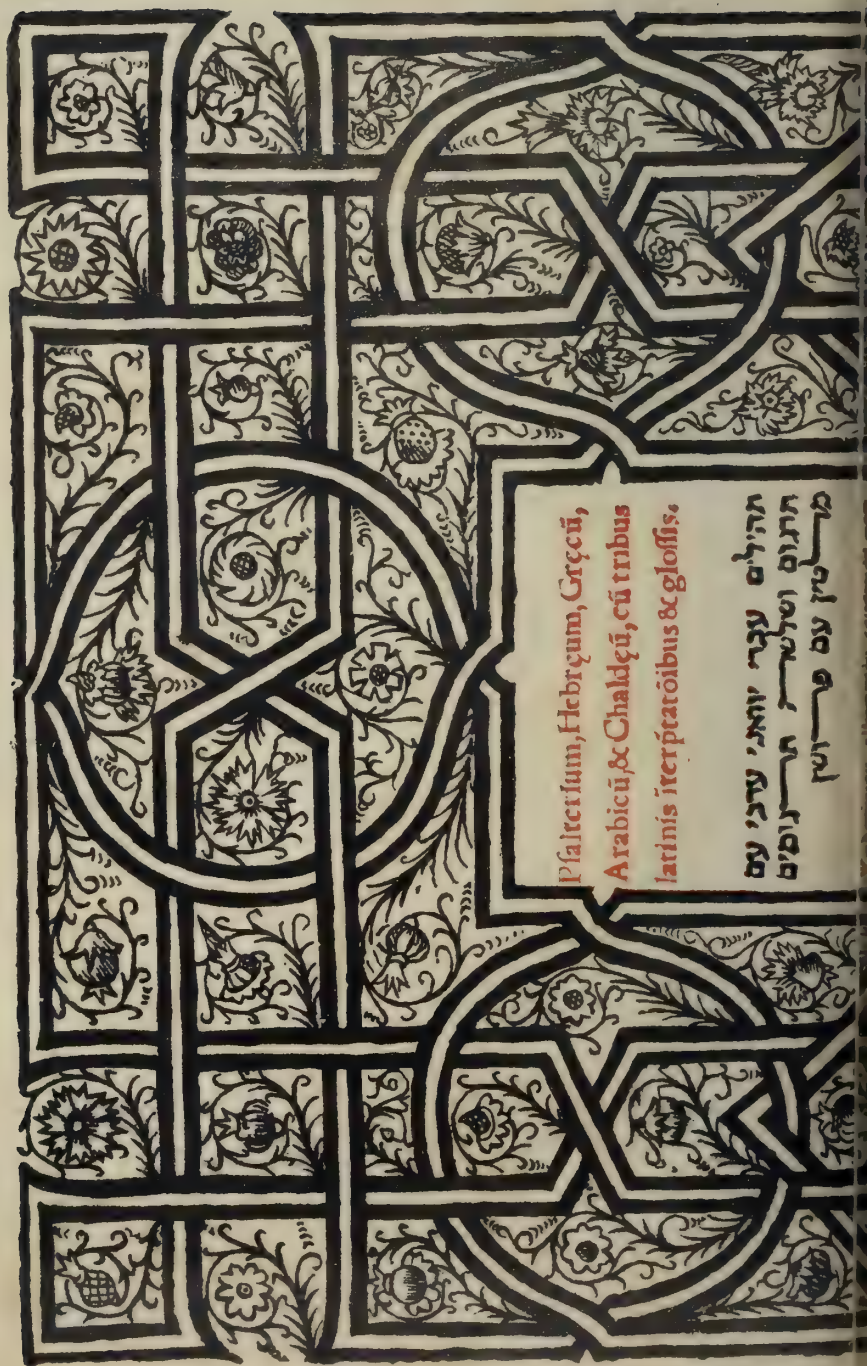 Psalterium, Hebręum, Gręcũ,
Arabicũ, & Chaldęũ, cũ tribus
latinis ĩterp̃tatõibus & glossis.
תהילים עברי יוואני ערבי עם
תרגום ושלשה תרגומים
מלטין עם פרושן